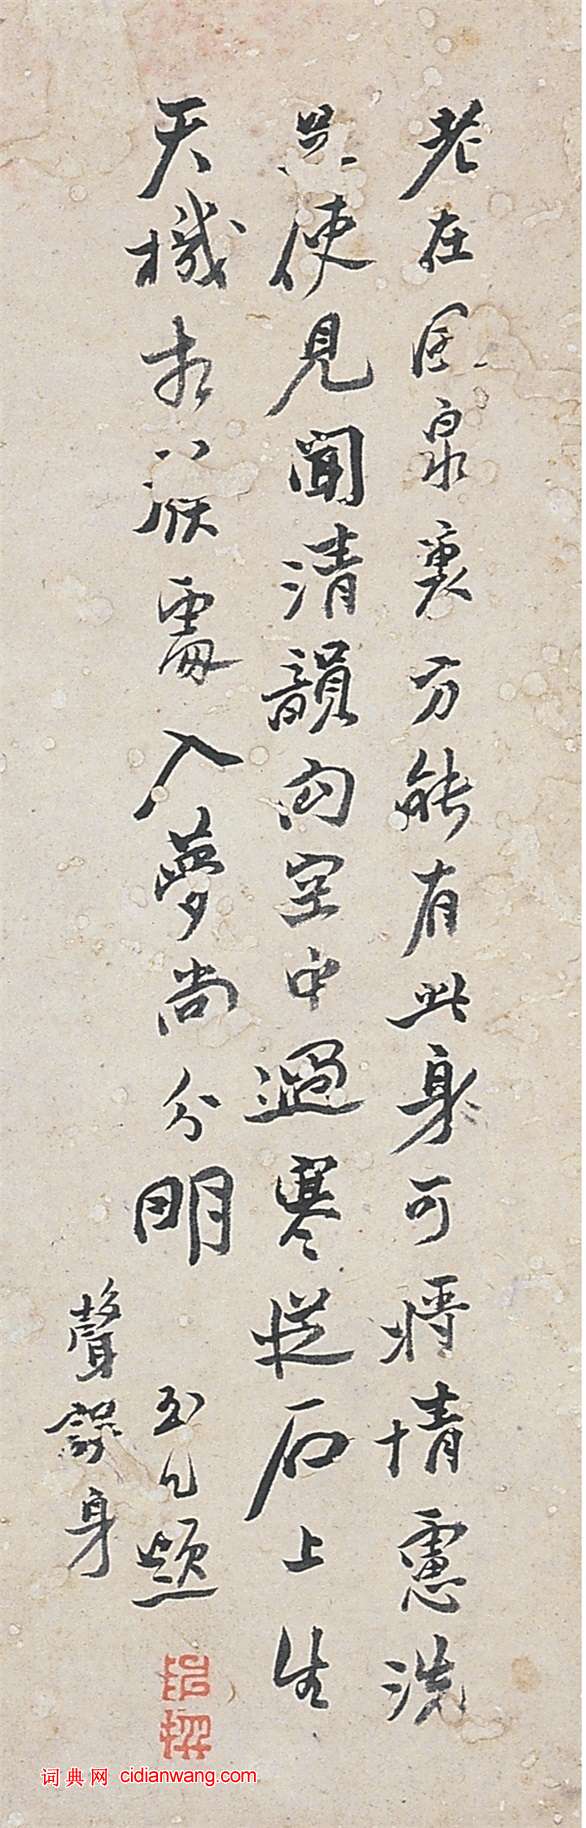 老在風泉裏方能有此身可將情慮洗
只使見聞清韻向空中過寒從石上生
天機相發處入夢尚分明
題
聲誤身
词典网 cidianwang.com